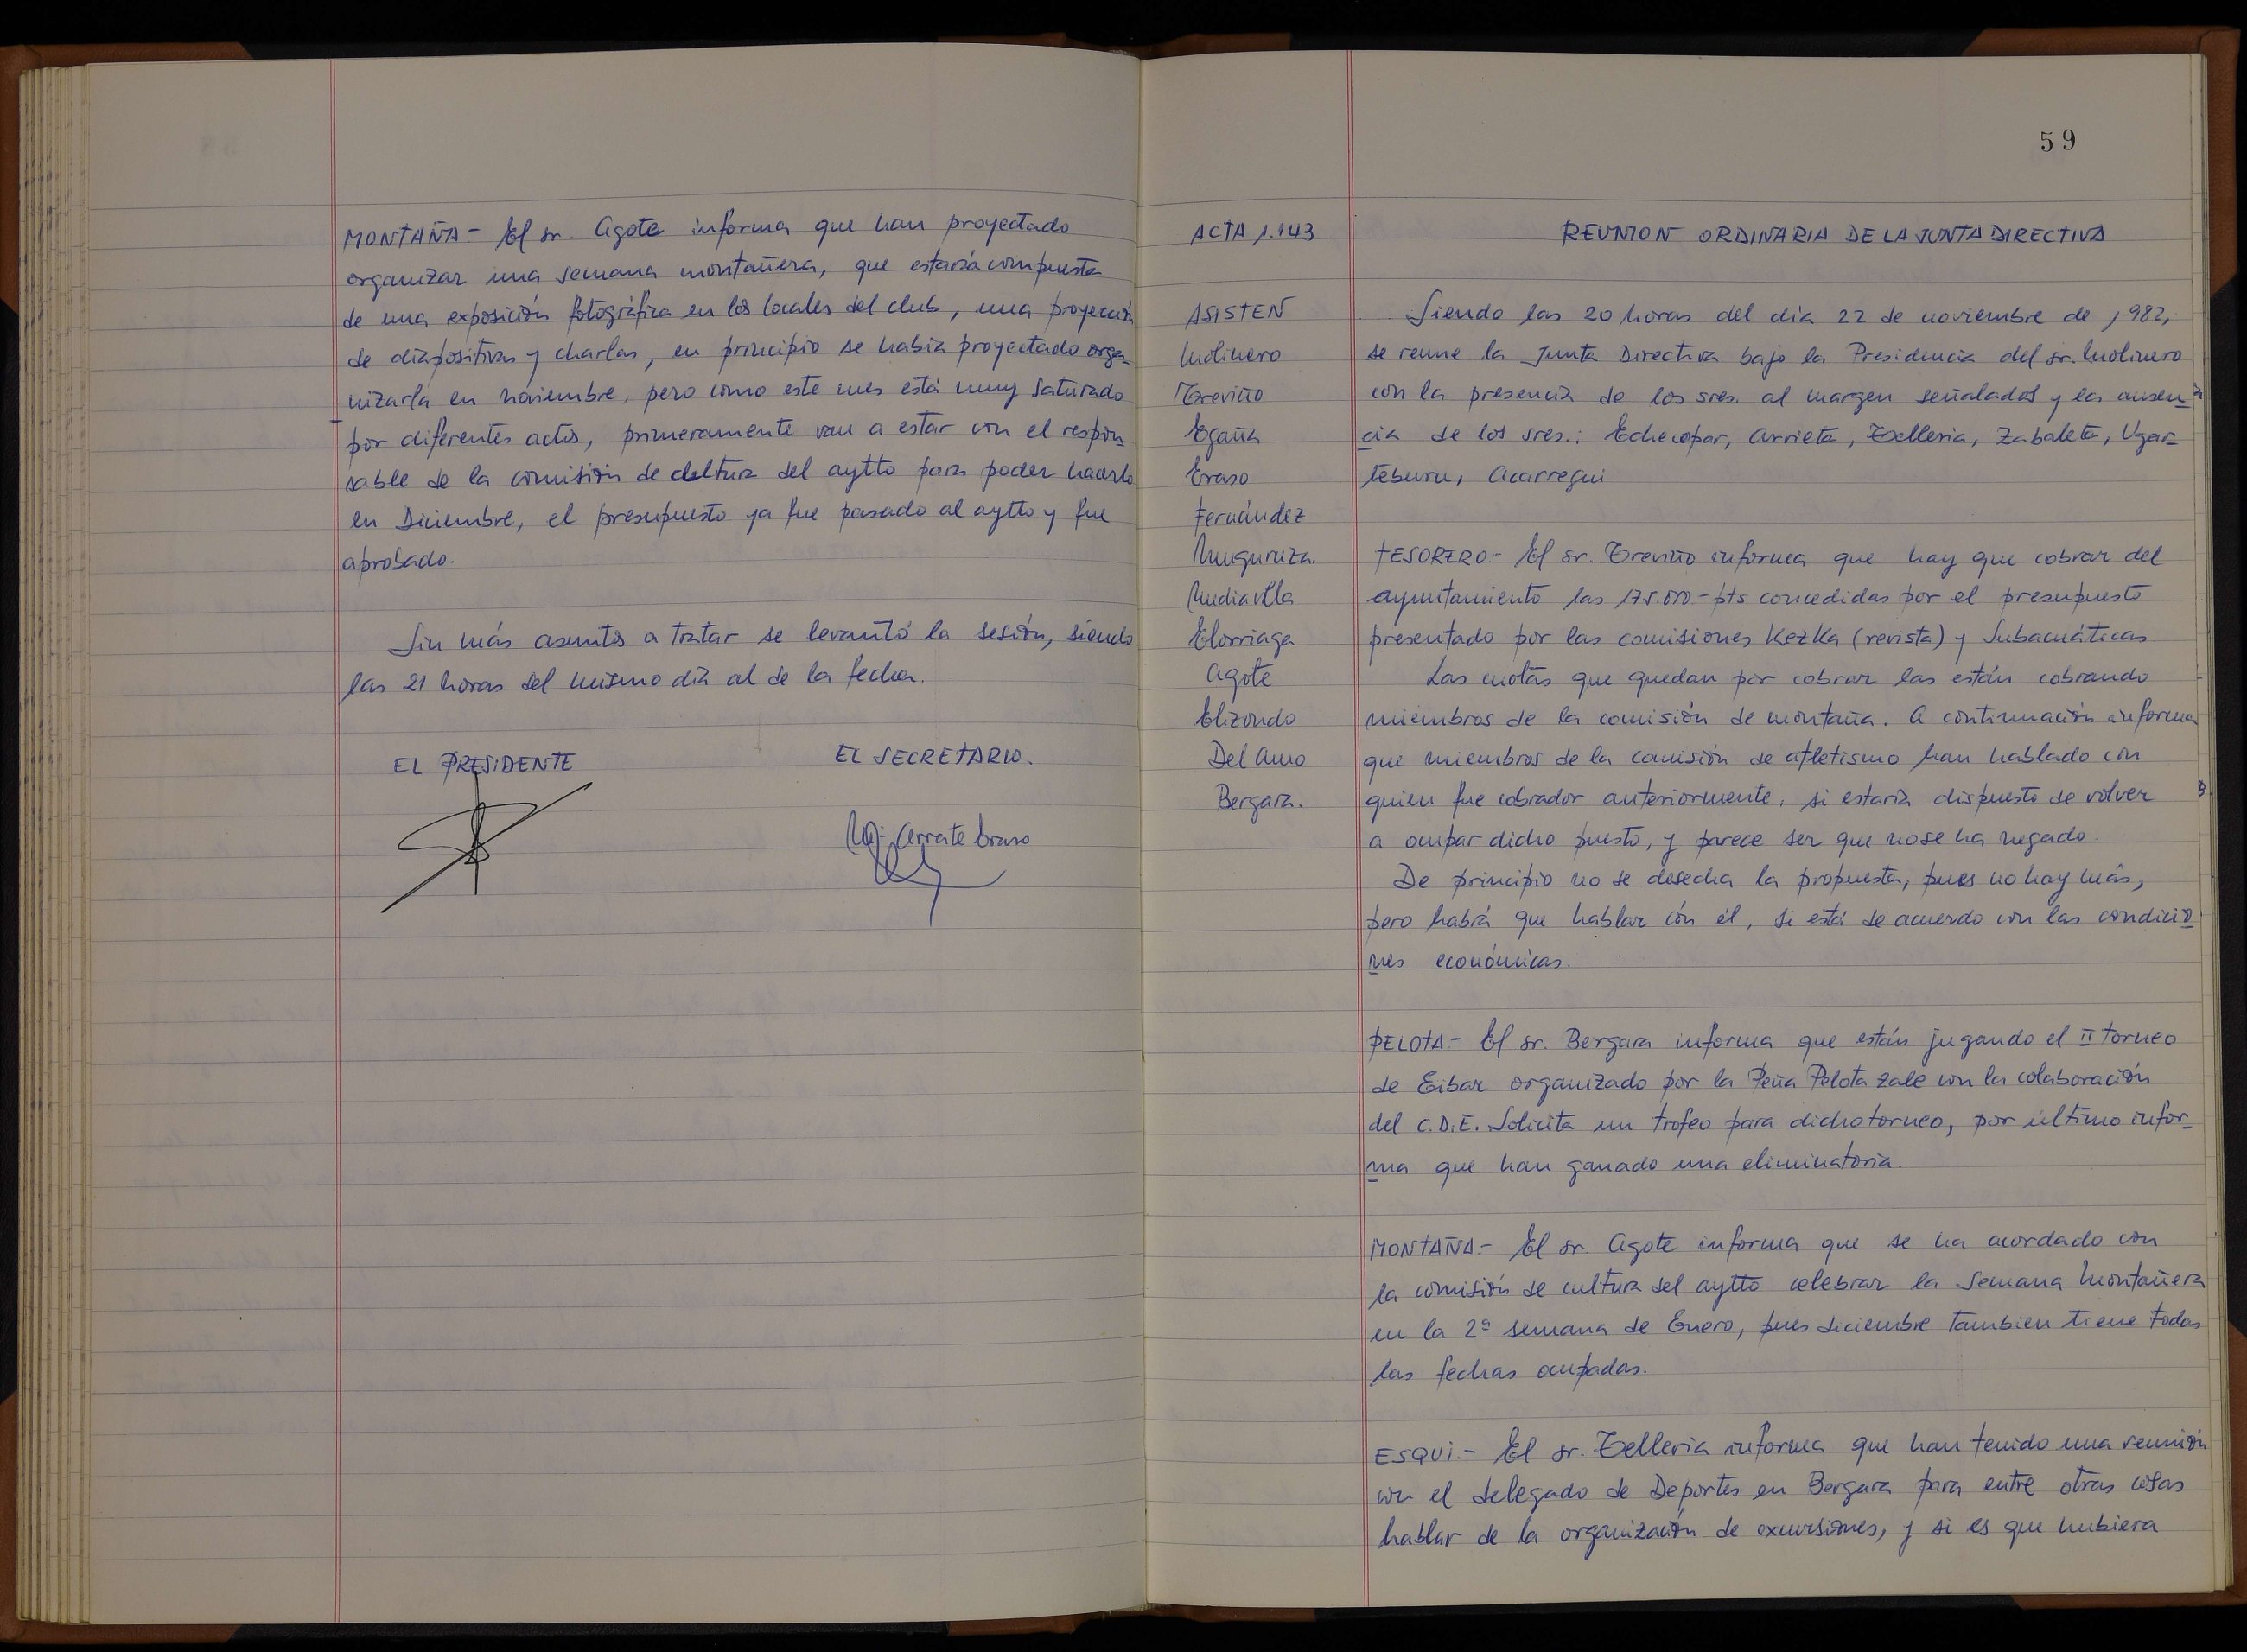 MONTAÑA - El sr. Agote informa que han proyectado
organizar una semana montañera, que estaría compuesta
de una exposición fotográfica en los locales del club, una proyección
de diapositivas y charlas, en principio se había proyectado orga-
nizarla en noviembre, pero como este mes está muy saturado
por diferentes actos, primeramente van a estar con el respon
sable de la comisión de cultura del aytto para poder hacerlo
en Diciembre, el presupuesto ya fue pasado al aytto y fue
aprobado.
Sin más asuntos a tratar se levantó la sesión, siendo
las 21 horas del mismo día al de la fecha.
EL PRESIDENTE
EL SECRETARIO.
Mª Arrate Eraso
59
ACTA 1.143
REUNION ORDINARIA DE LA JUNTA DIRECTIVA
ASISTEN
Molinero
Treviño
Egaña
Eraso
Fernández
Muguruza.
Mediavilla
Elorriaga
Agote
Elizondo
Del Amo
Bergara.
Siendo las 20 horas del día 22 de noviembre de 1.982,
se reune la Junta Directiva bajo la Presidencia del sr. Molinero
con la presencia de los sres. al margen señalados y la ausen-
cia de los sres.: Echecopar, Arrieta, Telleria, Zabaleta, Ugar-
teburu, Acarregui
TESORERO.- El sr. Treviño informa que hay que cobrar del
ayuntamiento las 175.000-pts concedidas por el presupuesto
presentado por las comisiones Kezka (revista) y Subacuáticas
Las cuotas que quedan por cobrar las están cobrando
miembros de la comisión de montaña. A continuación informa
que miembros de la comisión de atletismo han hablado con
quien fue cobrador anteriormente, si estaría dispuesto de volver
a ocupar dicho puesto, y parece ser que no se ha negado.
De principio no se desecha la propuesta, pues no hay más,
pero habrá que hablar con él, si está de acuerdo con las condicio
nes económicas.
PELOTA.- El sr. Bergara informa que están jugando el II torneo
de Eibar organizado por la Peña Pelotazale con la colaboración
del C.D.E. Solicita un trofeo para dicho torneo, por último infor-
ma que han ganado una eliminatoria.
MONTAÑA.- El sr. Agote informa que se ha acordado con
la comisión de cultura del aytto celebrar la Semana Montañera
en la 2ª semana de Enero, pues diciembre tambien tiene todas
las fechas ocupadas.
ESQUI.- El sr. Telleria informa que han tenido una reunión
con el delegado de Deportes en Bergara para entre otras cosas
hablar de la organización de excursiones, y si es que hubiera